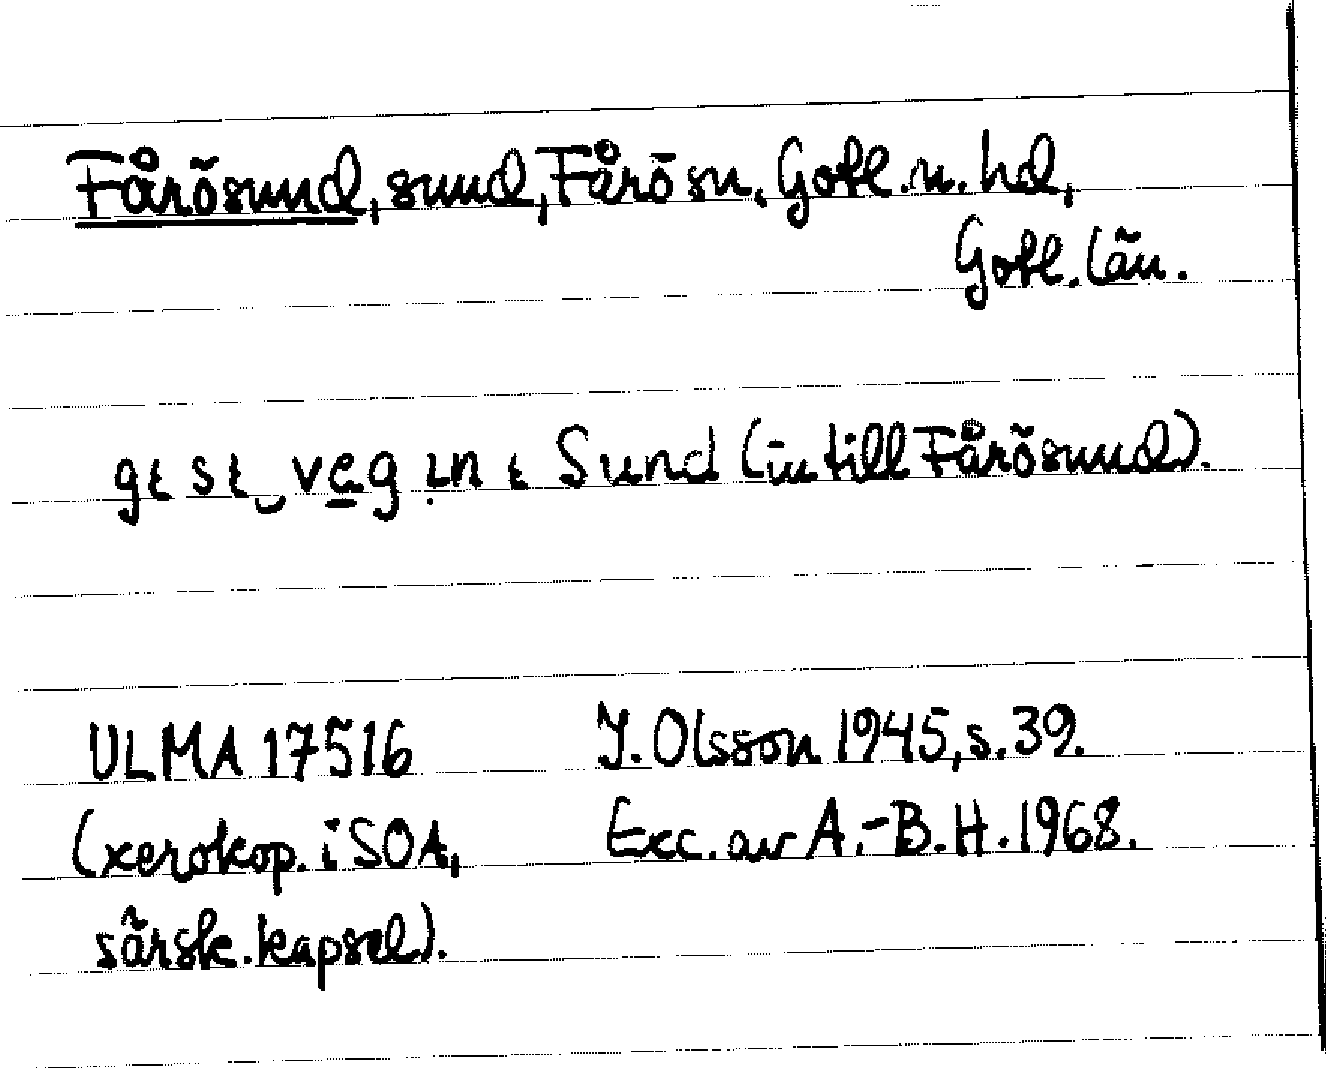 Fårösund, sund, Fårö sn, Gotl. n. hd,
Gotl. län.
Sund (in till Fårösund).
ULMA 17516
(xerokop. i SOA,
särsk. kapsel).
J. Olsson 1945, s. 39.
Exc. av A.-B. H. 1968.